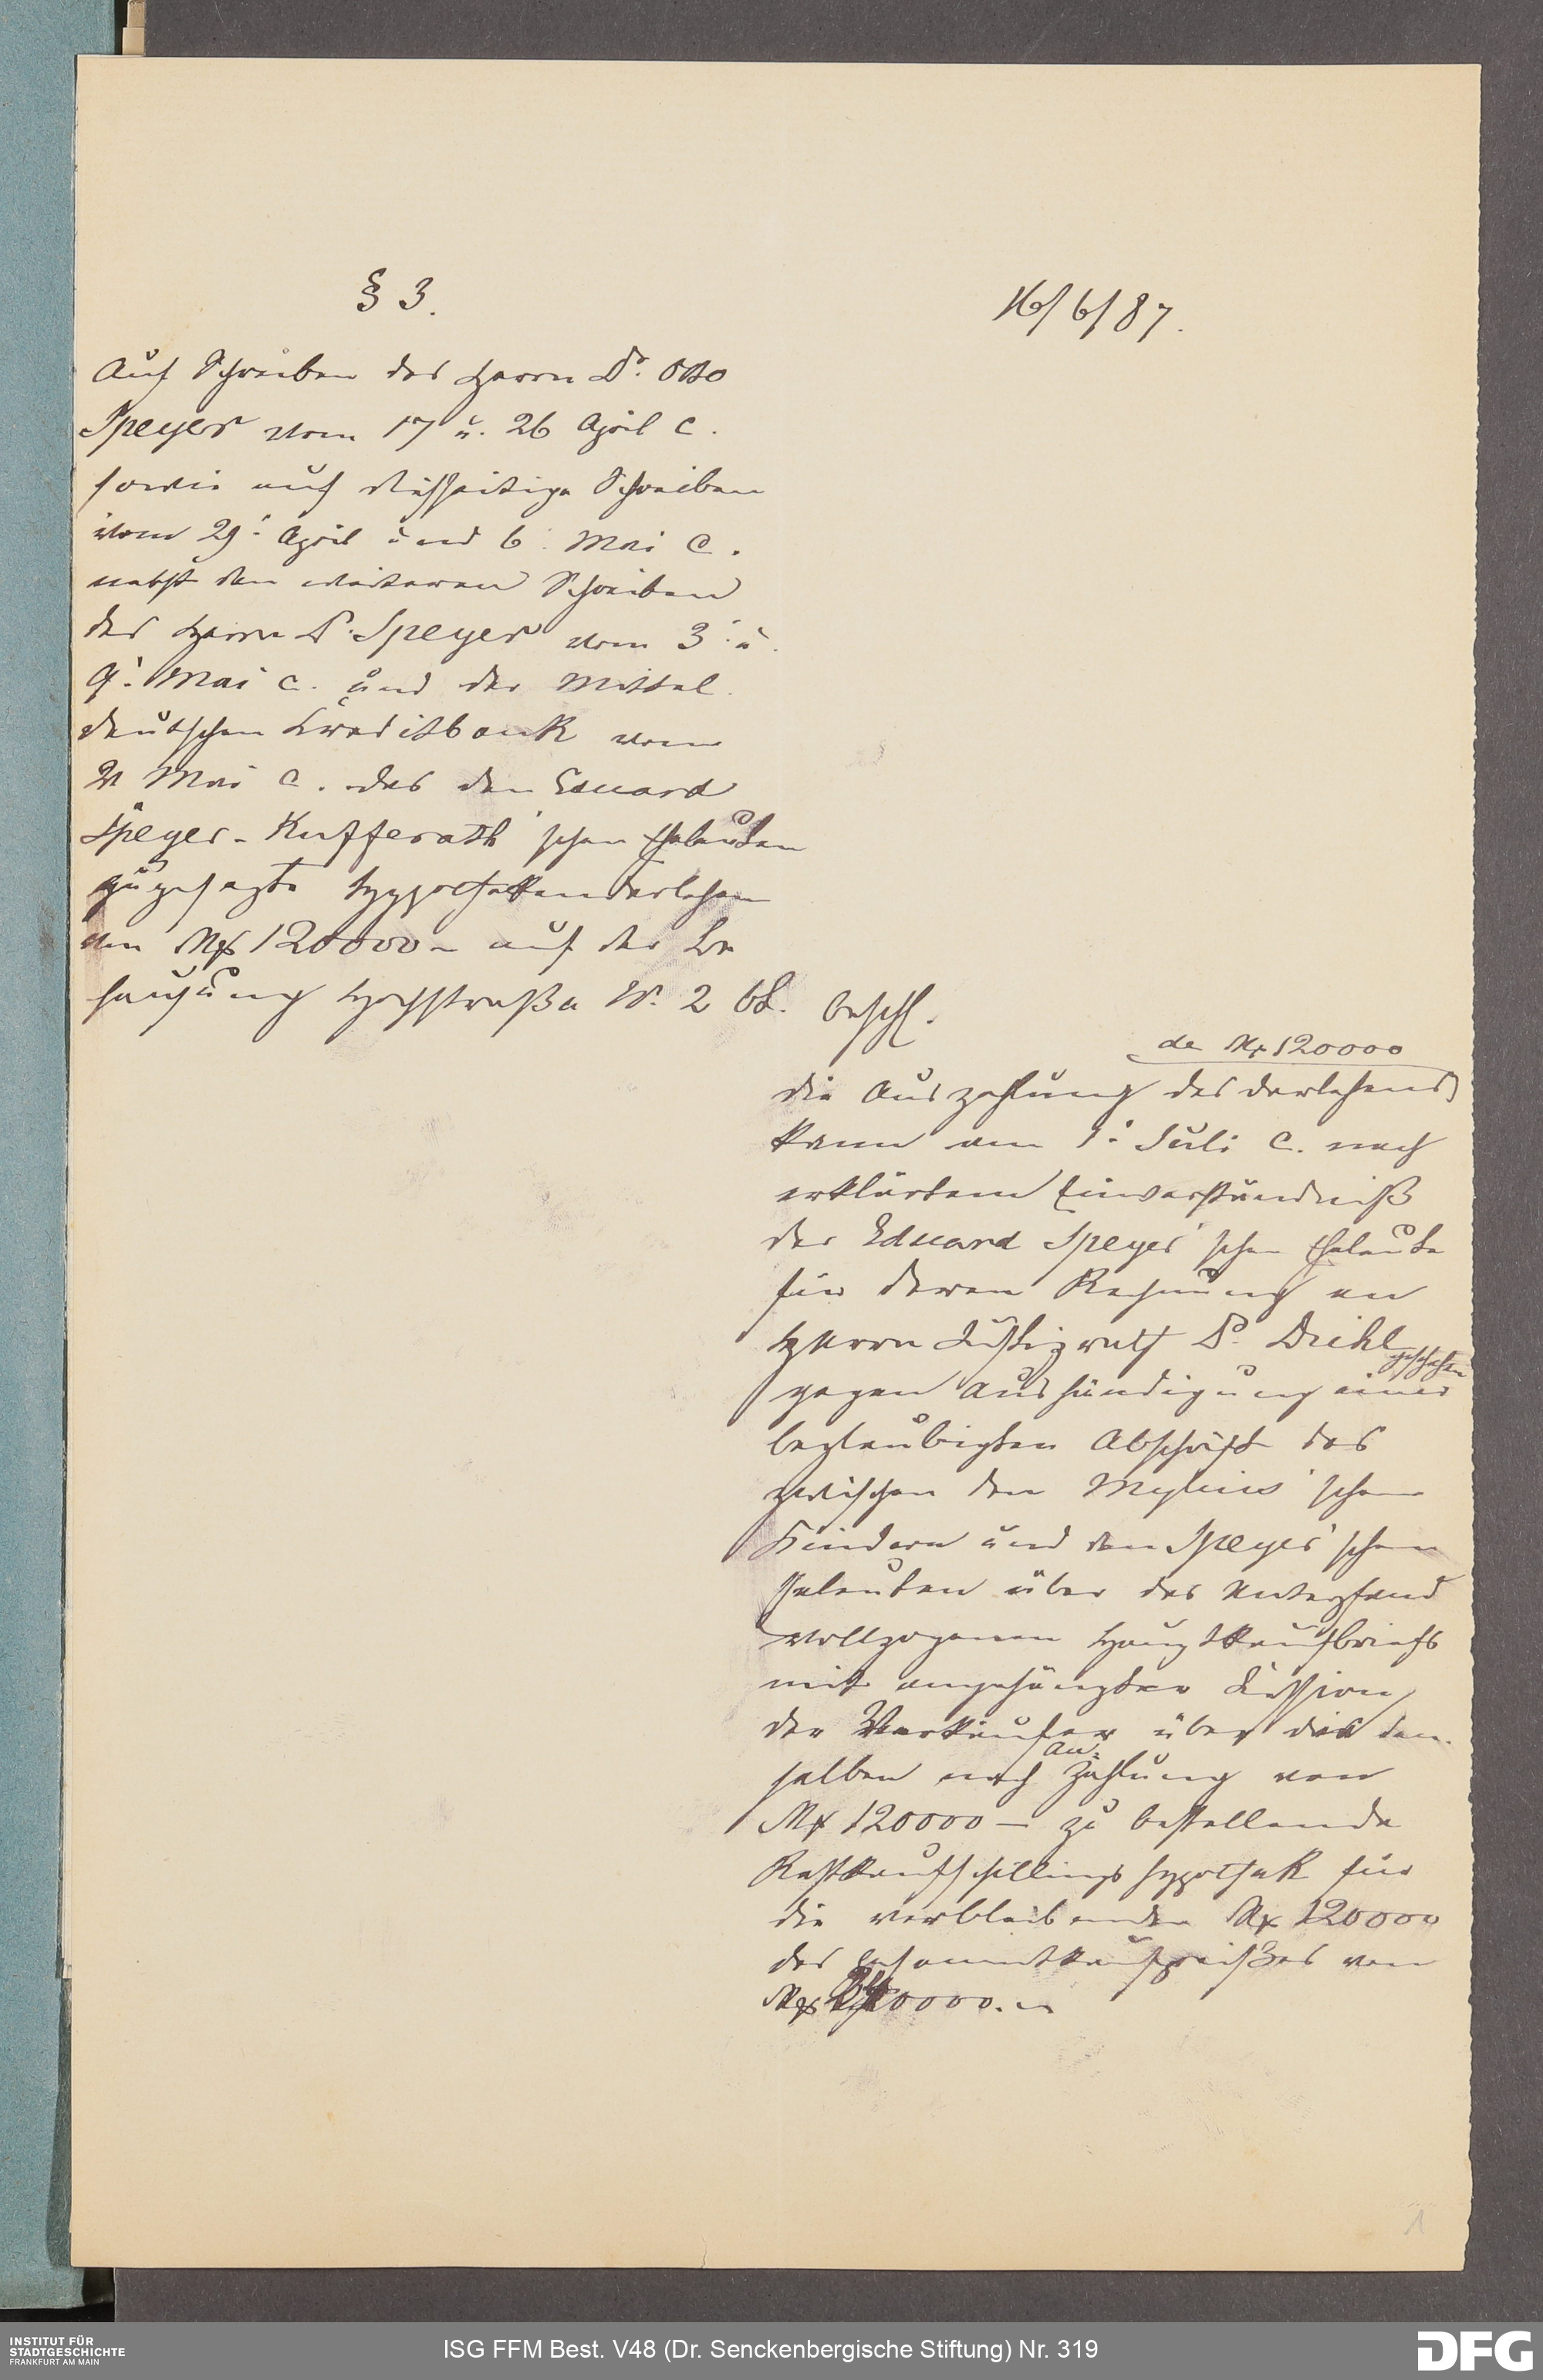 § 3.
16/6/87.
Auf Schreiben des Herrn Dr. Otto
Speyer vom 17 u. 26 April c.
sowie auf diesseitige Schreiben
vom 29. April und 6. Mai c.
nebst den weiteren Schreiben
des Herrn Dr. Speyer vom 3. u.
9. Mai c. und der Mittel
deutschen Creditbank vom
21 Mai c. das den Eduard
Speyer-Kufferath'schen Eheleuten
zugesagte Hypothekendarlehen
von Mk 120000 – auf der Be
hausung Hochstraße No. 2 btr.
beschl.
de Mk 120000
die Auszahlung des Darlehens
kann am 1. Juli c. nach
erklärtem Einverständniß
der Eduard Speyer'schen Eheleute
für deren Rechnung an
Herrn Justizrath Dr. Diehl
geschehen
gegen Aushändigung einer
beglaubigten Abschrift des
zwischen den Mylius'schen
Kindern und den Speyer'schen
Eheleuten über das Unterpfand
vollzogenen Hauptkaufbriefs
mit angehängter Cession
der Verkäufer über die den
selben nach
An=
zahlung von
Mk 120000 – zu bestellende
Restkaufschillingshypothek für
die verbleibenden Mk 120000
des Gesammtkaufpreißes von
Mk 240000. –
1
INSTITUT FÜR
STADTGESCHICHTE
FRANKFURT AM MAIN
ISG FFM Best. V48 (Dr. Senckenbergische Stiftung) Nr. 319
DFG